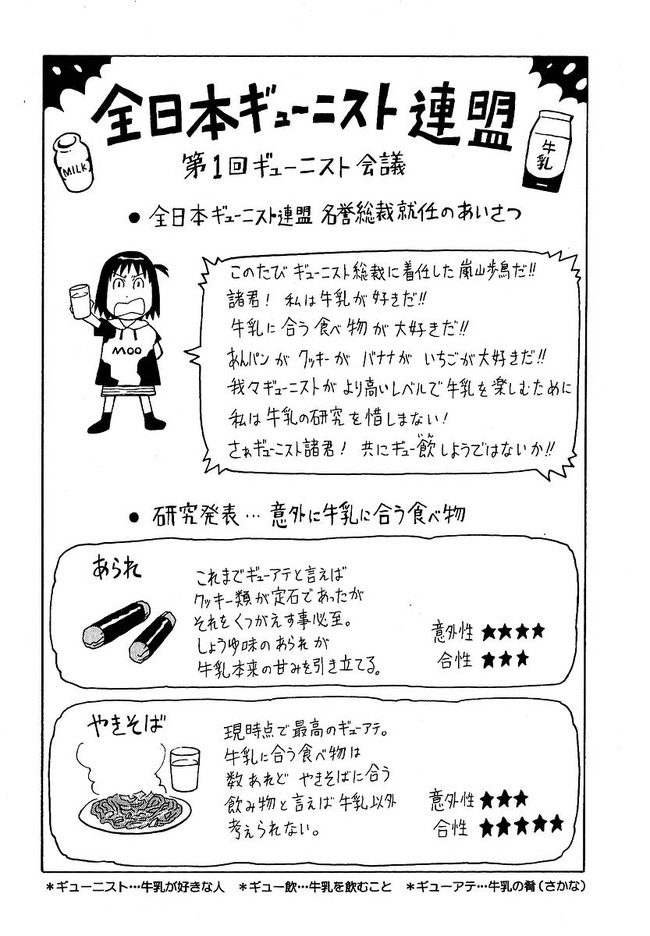 全日本ギューニスト連盟
MILK
牛乳
第1回ギューニスト会議
● 全日本ギューニスト連盟 名誉総裁就任のあいさつ
MOO
このたび ギューニスト総裁に着任した嵐山歩鳥だ!!
諸君! 私は牛乳が好きだ!!
牛乳に合う食べ物が大好きだ!!
あんパンが クッキーが バナナが いちごが大好きだ!!
我々ギューニストが より高いレベルで牛乳を楽しむために
私は牛乳の研究を惜しまない!
さぁギューニスト諸君! 共にギュー飲しようではないか!!
● 研究発表… 意外に牛乳に合う食べ物
あられ
これまでギューアテと言えば
クッキー類が定石であったが
それをくつがえす事必至。
しょうゆ味のあられが
牛乳本来の甘みを引き立てる。
意外性 ★★★★
合性 ★★★
やきそば
現時点で最高のギューアテ。
牛乳に合う食べ物は
数あれど やきそばに合う
飲み物と言えば牛乳以外
考えられない。
意外性 ★★★
合性 ★★★★★
*ギューニスト…牛乳が好きな人 *ギュー飲…牛乳を飲むこと *ギューアテ…牛乳の肴(さかな)